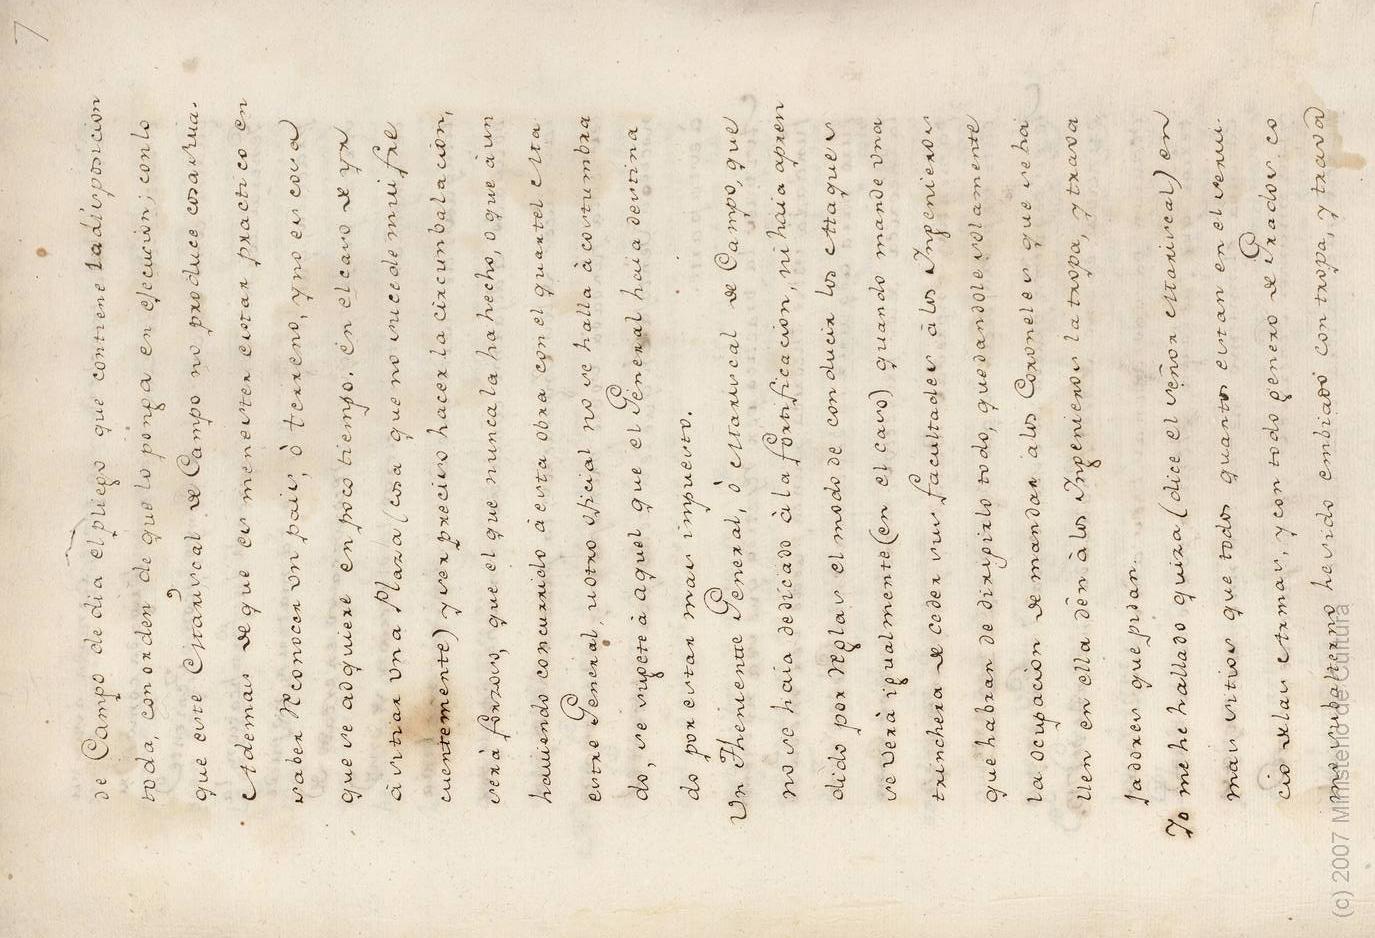 7
de Campo de dia el pliego que contiene la disposicion
toda, con orden de que lo ponga en ejecucion; con lo
que este Mariscal de Campo no produce cosa sua.
Ademas de que es menester estar practico en
saber Reconocer un pais, ò terreno, y no es cosa
que se adquiere en poco tiempo. En el caso de yr
à sitiar una Plaza (cosa que no sucede mui fre
cuentemente) y ser preciso hacer la circunbalacion,
serà forzoso, que el que nunca la ha hecho, o que àun
haviendo concurrido à esta obra con el quartel Ma
estre General, u otro oficial no se halla àcostumbra
do, se sugete à aquel que el General haia destina
do por estar mas impuesto.
Un Theniente General, ò Mariscal de Campo, que
no se haia dedicado à la fortificacion, ni haia apren
dido por Reglas el modo de conducir los Ataques
se verà igualmente (en el caso) quando mande una
trinchera de ceder sus facultades à los Ingenieros
que habran de dirigirlo todo, quedandole solamente
la ocupacion de mandar a los Coroneles que se ha
llen en ella dèn à los Ingenieros la tropa, y trava
jadores que pidan.
Yo me he hallado quiza (dice el señor Mariscal) en
mas sitios que todos quantos estan en el servi.
cio de las Armas, y con todo genero de Grados co
mo subalterno he sido embiado con tropa, y trava
(c) 2007 Ministerio de Cultura